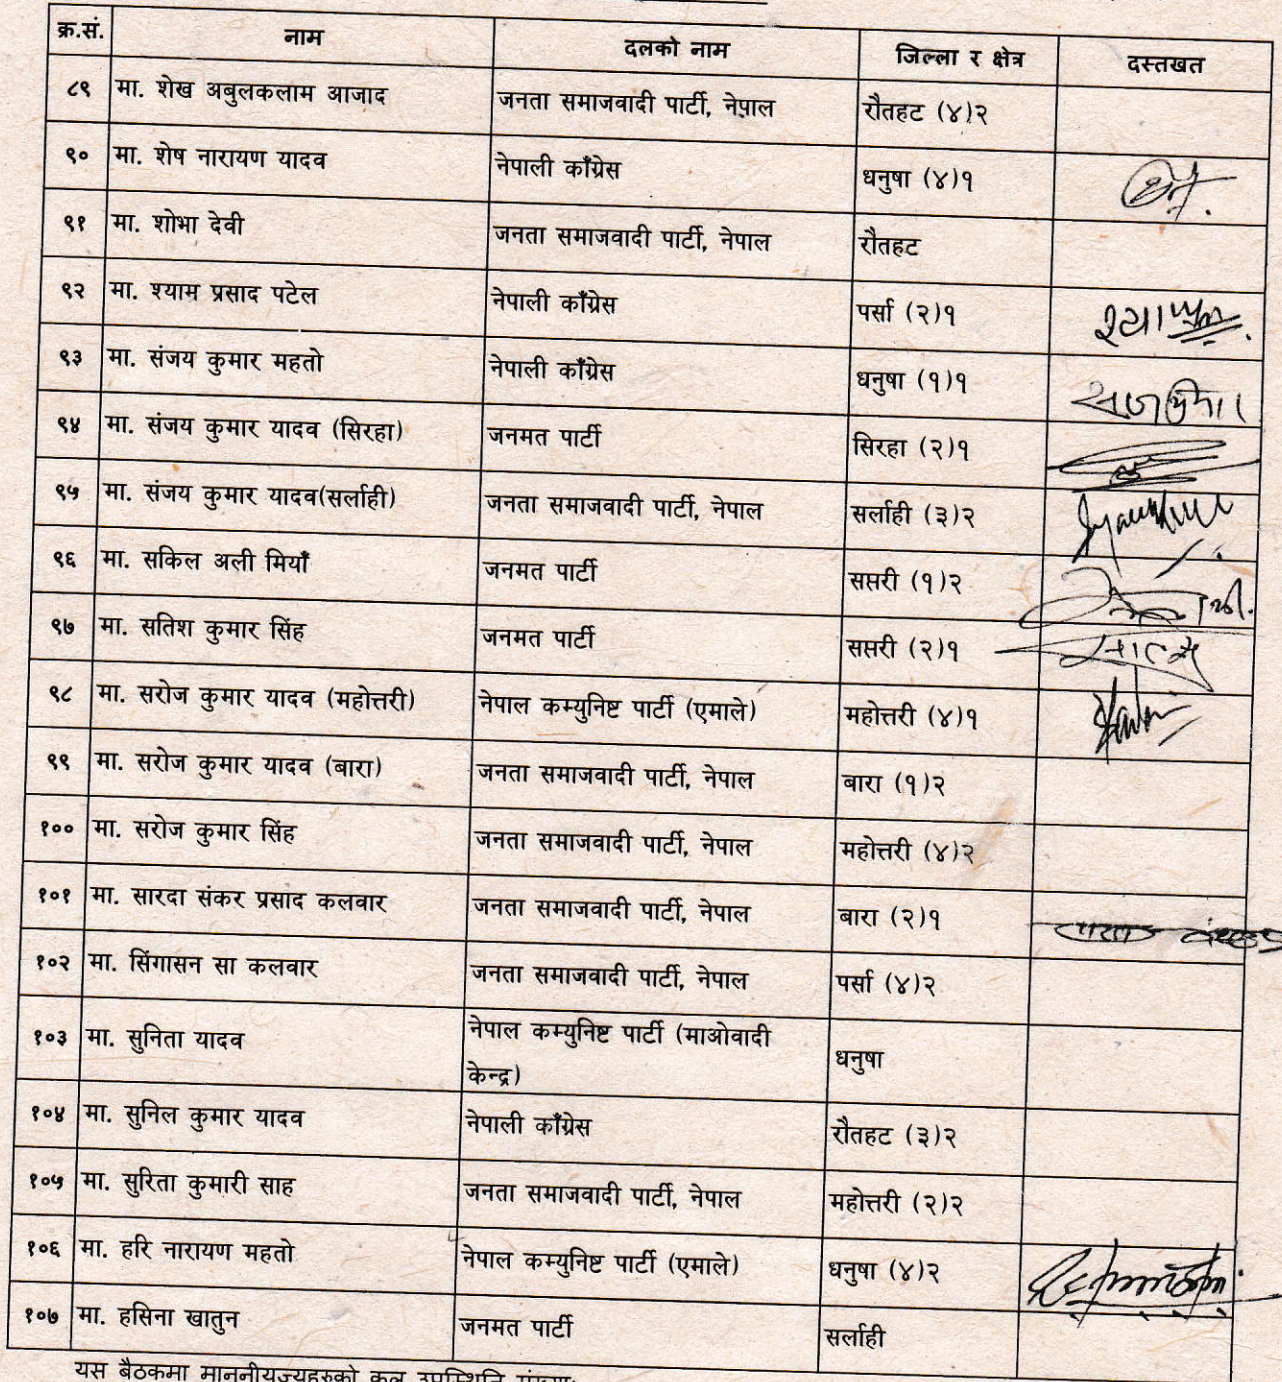 क्र.सं. नाम दलको नाम जिल्ला र क्षेत्र दस्तखत
८९ मा. शेख अबुलकलाम आजाद जनता समाजवादी पार्टी, नेपाल रौतहट (४)२
९० मा. शेष नारायण यादव नेपाली काँग्रेस धनुषा (४)१
९१ मा. शोभा देवी जनता समाजवादी पार्टी, नेपाल रौतहट
९२ मा. श्याम प्रसाद पटेल नेपाली काँग्रेस पर्सा (२)१
९३ मा. संजय कुमार महतो नेपाली काँग्रेस धनुषा (१)१
९४ मा. संजय कुमार यादव (सिरहा) जनमत पार्टी सिरहा (२)१
९५ मा. संजय कुमार यादव(सर्लाही) जनता समाजवादी पार्टी, नेपाल सर्लाही (३)२
९६ मा. सकिल अली मियाँ जनमत पार्टी सप्तरी (१)२
९७ मा. सतिश कुमार सिंह जनमत पार्टी सप्तरी (२)१
९८ मा. सरोज कुमार यादव (महोत्तरी) नेपाल कम्युनिष्ट पार्टी (एमाले) महोत्तरी (४)१
९९ मा. सरोज कुमार यादव (बारा) जनता समाजवादी पार्टी, नेपाल बारा (१)२
१०० मा. सरोज कुमार सिंह जनता समाजवादी पार्टी, नेपाल महोत्तरी (४)२
१०१ मा. सारदा संकर प्रसाद कलवार जनता समाजवादी पार्टी, नेपाल बारा (२)१
१०२ मा. सिंगासन सा कलवार जनता समाजवादी पार्टी, नेपाल पर्सा (४)२
१०३ मा. सुनिता यादव नेपाल कम्युनिष्ट पार्टी (माओवादी
केन्द्र) धनुषा
१०४ मा. सुनिल कुमार यादव नेपाली काँग्रेस रौतहट (३)२
१०५ मा. सुरिता कुमारी साह जनता समाजवादी पार्टी, नेपाल महोत्तरी (२)२
१०६ मा. हरि नारायण महतो नेपाल कम्युनिष्ट पार्टी (एमाले) धनुषा (४)२
१०७ मा. हसिना खातुन जनमत पार्टी सर्लाही
यस बैठकमा माननीयज्यूहरुको कुल उपस्थिति संख्याः